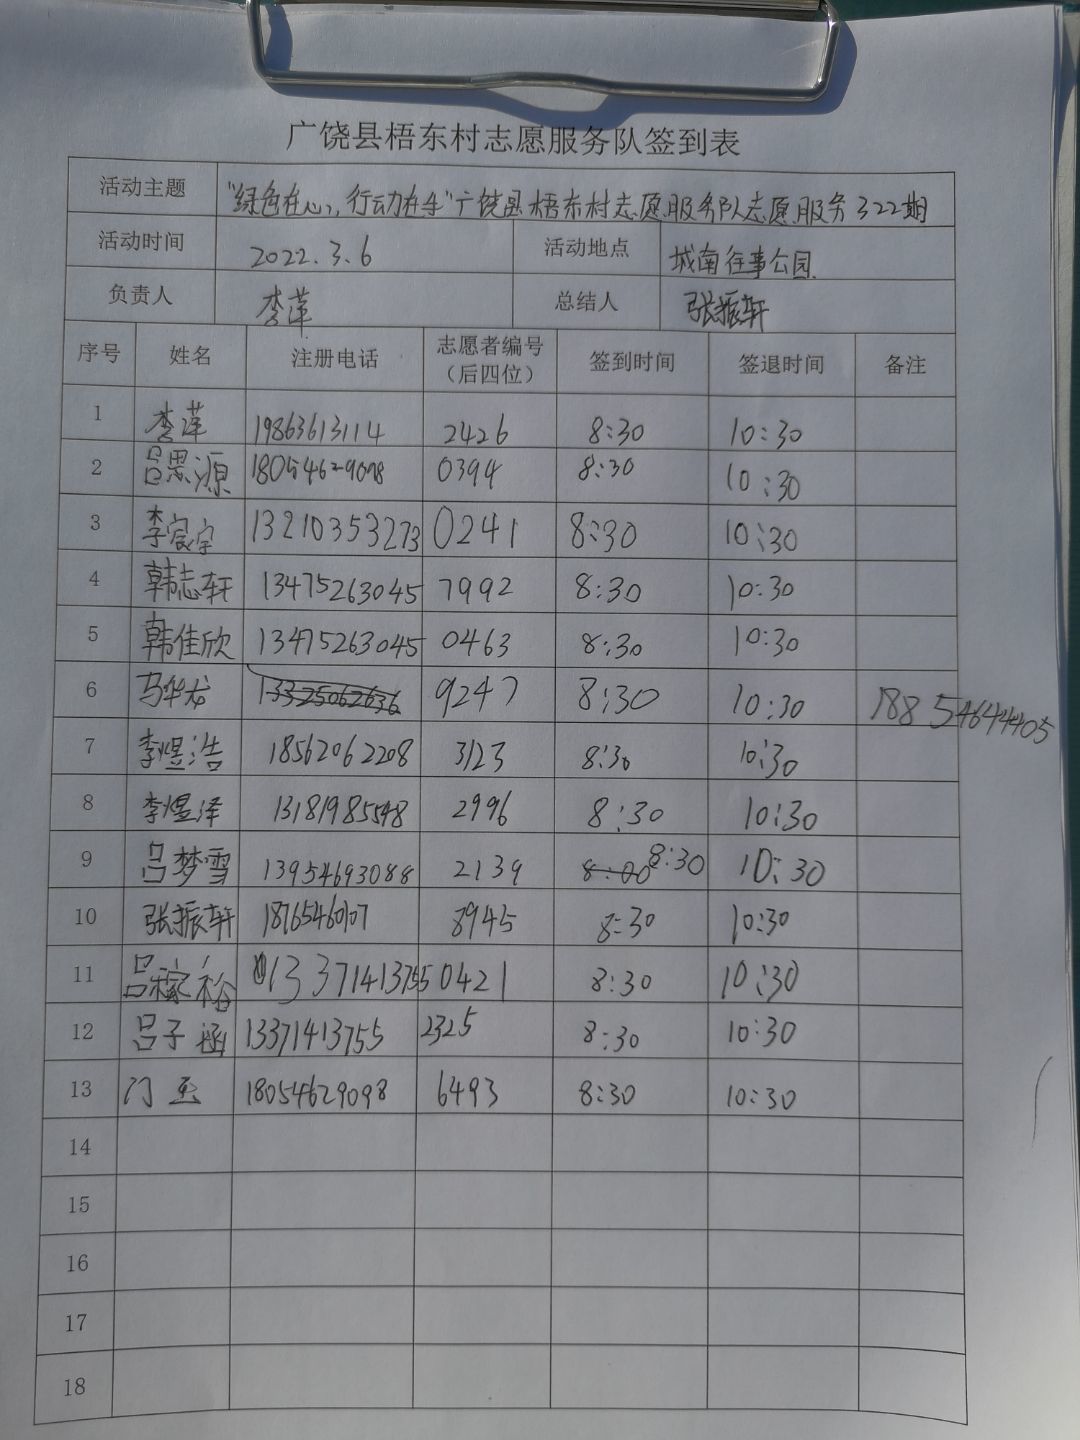 广饶县梧东村志愿服务队签到表
活动主题 “绿色在心，行动在手”广饶县梧东村志愿服务队志愿服务322期
活动时间 2022.3.6 活动地点 城南往事公园
负责人 李莲 总结人 张振轩
序号 姓名 注册电话 志愿者编号（后四位） 签到时间 签退时间 备注
1 李莲 19863613114 2426 8:30 10:30
2 吕思源 18054629098 0394 8:30 10:30
3 李宸宇 13210353273 0241 8:30 10:30
4 韩志轩 13475263045 7992 8:30 10:30
5 韩佳欣 13475263045 0463 8:30 10:30
6 马华龙 13325062636 9247 8:30 10:30 18854644405
7 李煜浩 18562062208 3123 8:30 10:30
8 李煜泽 13181985548 2996 8:30 10:30
9 吕梦雪 13954693088 2139 8:00 8:30 10:30
10 张振轩 18765460107 8945 8:30 10:30
11 吕稼裕 13371413755 0421 8:30 10:30
12 吕子涵 13371413755 2325 8:30 10:30
13 门 18054629098 6493 8:30 10:30
14
15
16
17
18